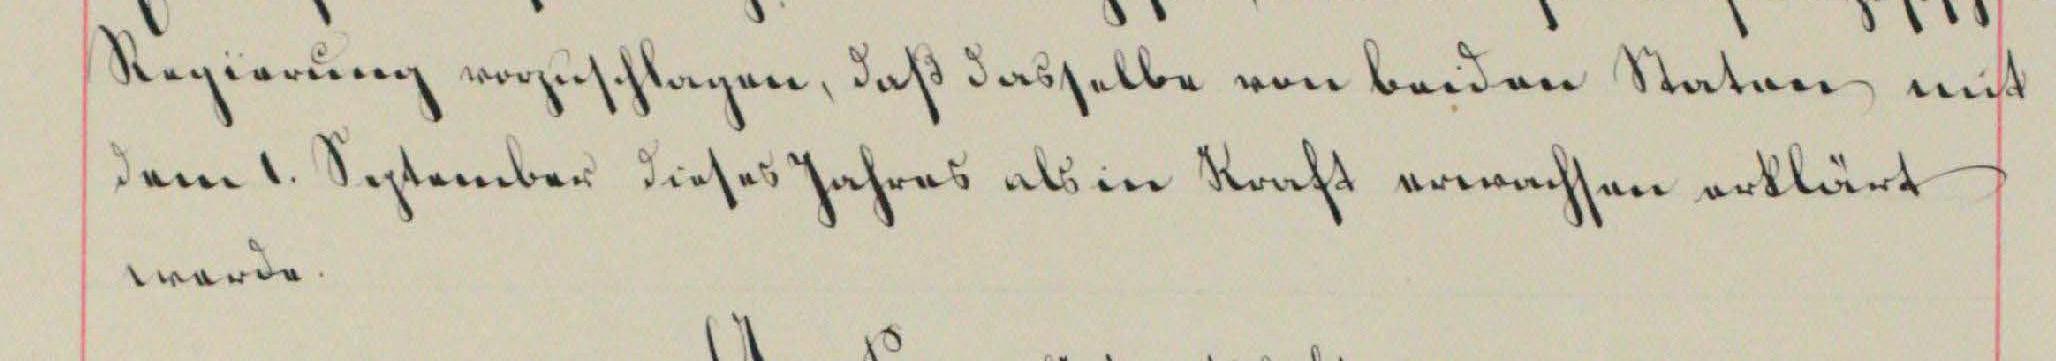 Regierung vorzuschlagen, daß dasselbe von beiden Staten mit
dem 1. September dieses Jahres als in Kraft erwachsen erklärt
werde.